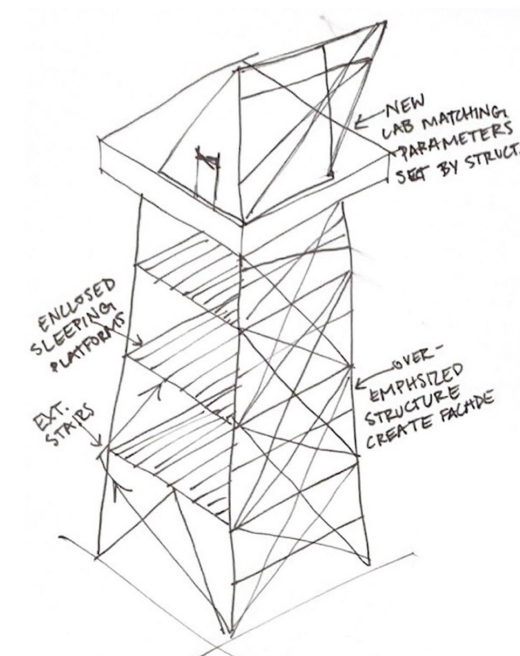 NEW
LAB MATCHING
PARAMETERS
SET BY STRUCT.
ENCLOSED
SLEEPING
PLATFORMS
EXT.
STAIRS
OVER-
EMPHSIZED
STRUCTURE
CREATE FACADE